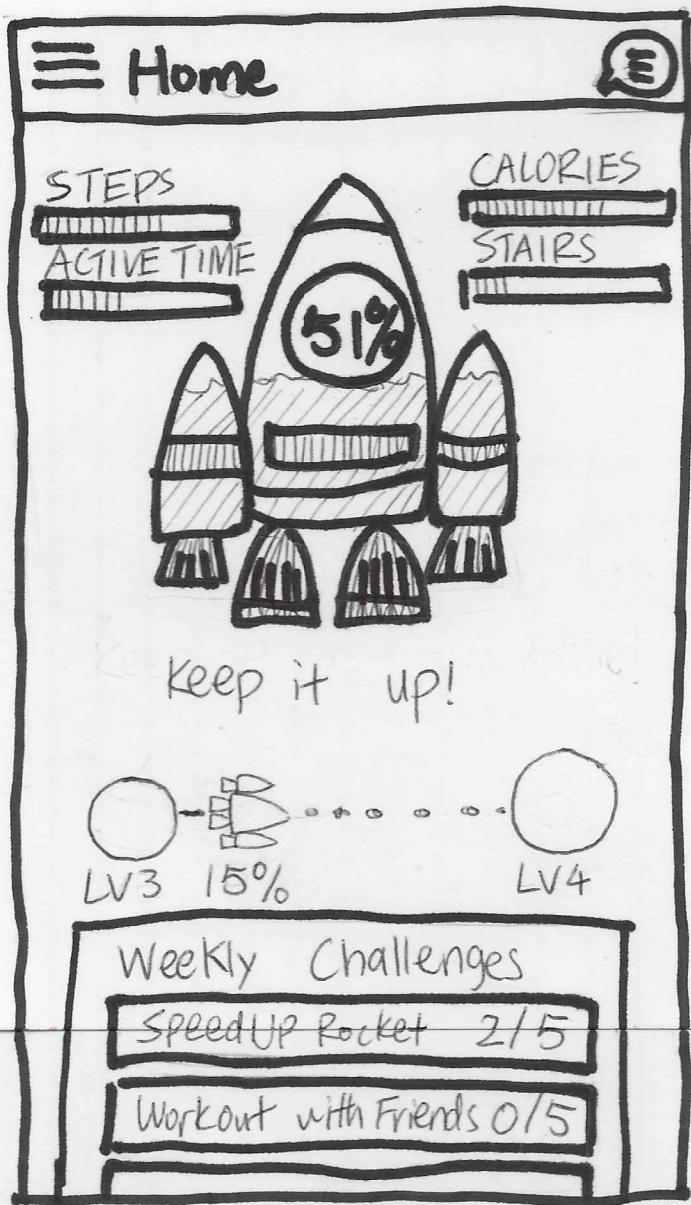 Home
STEPS
CALORIES
ACTIVE TIME
STAIRS
51%
Keep it up!
LV3 15% LV4
Weekly Challenges
SpeedUP Rocket 2/5
Workout with Friends 0/5